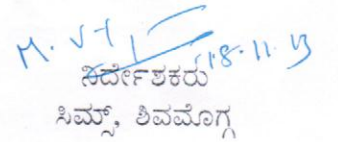 18.11.13
ನಿರ್ದೇಶಕರು
ಸಿಮ್ಸ್, ಶಿವಮೊಗ್ಗ